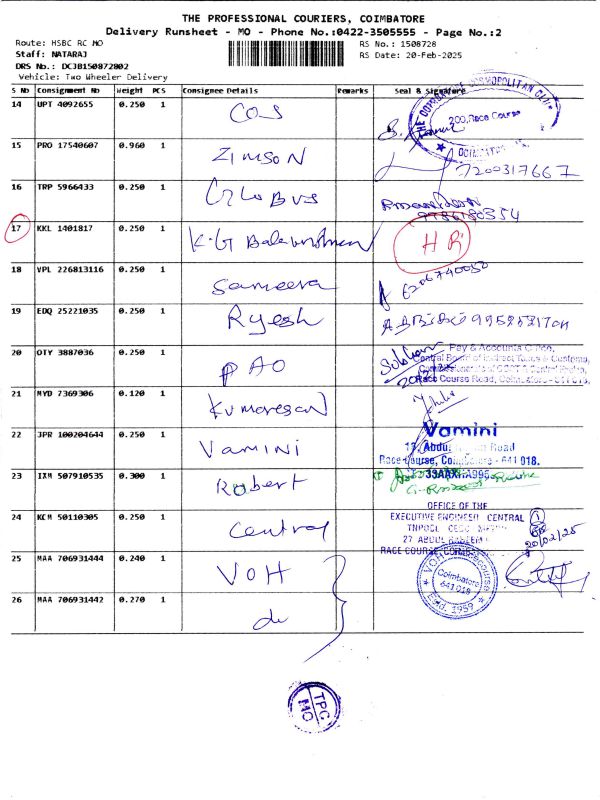 THE PROFESSIONAL COURIERS, COIMBATORE
Delivery Runsheet - MO - Phone No.:0422-3505555 - Page No.:2
Route: HSBC RC MO
RS No.: 1508728
Staff: NATARAJ
RS Date: 20-Feb-2025
DRS No.: DCJB150872802
Vehicle: Two Wheeler Delivery
S No Consignment No Weight PCS Consignee Details Remarks Seal & Signature
14 UPT 4092655 0.250 1 COS
THE COSMOPOLITAN CLUB
200, Race Course
15 PRO 17540607 0.960 1 ZIMSON 7200317667
16 TRP 5966433 0.250 1 GLOBUS
17 KKL 1401817 0.250 1 K.G Balakrishnan
18 VPL 226813116 0.250 1 Sameera 6206740050
19 EDQ 25221035 0.250 1
20 OTY 3887036 0.250 1 PAO
Pay & Accounts Office,
Central Board of Indirect Taxes & Customs,
Race Course Road, Coimbatore - 641 018.
21 MYD 7369306 0.120 1 Kumaresan
22 JPR 100204644 0.250 1 Vamini
Vamini
Road
Race Course, Coimbatore - 641 018.
23 IXM 507910535 0.300 1 Robert
24 KCM 50110305 0.250 1 Central
OFFICE OF THE
EXECUTIVE ENGINEER CENTRAL
27 ABDUL RAHEEM
RACE COURSE, COIMBATORE
20/02/25
25 MAA 706931444 0.240 1 VOH
VOH Racecourse
Coimbatore
641 018
Estd. 1959
26 MAA 706931442 0.270 1 do
TPC
MO